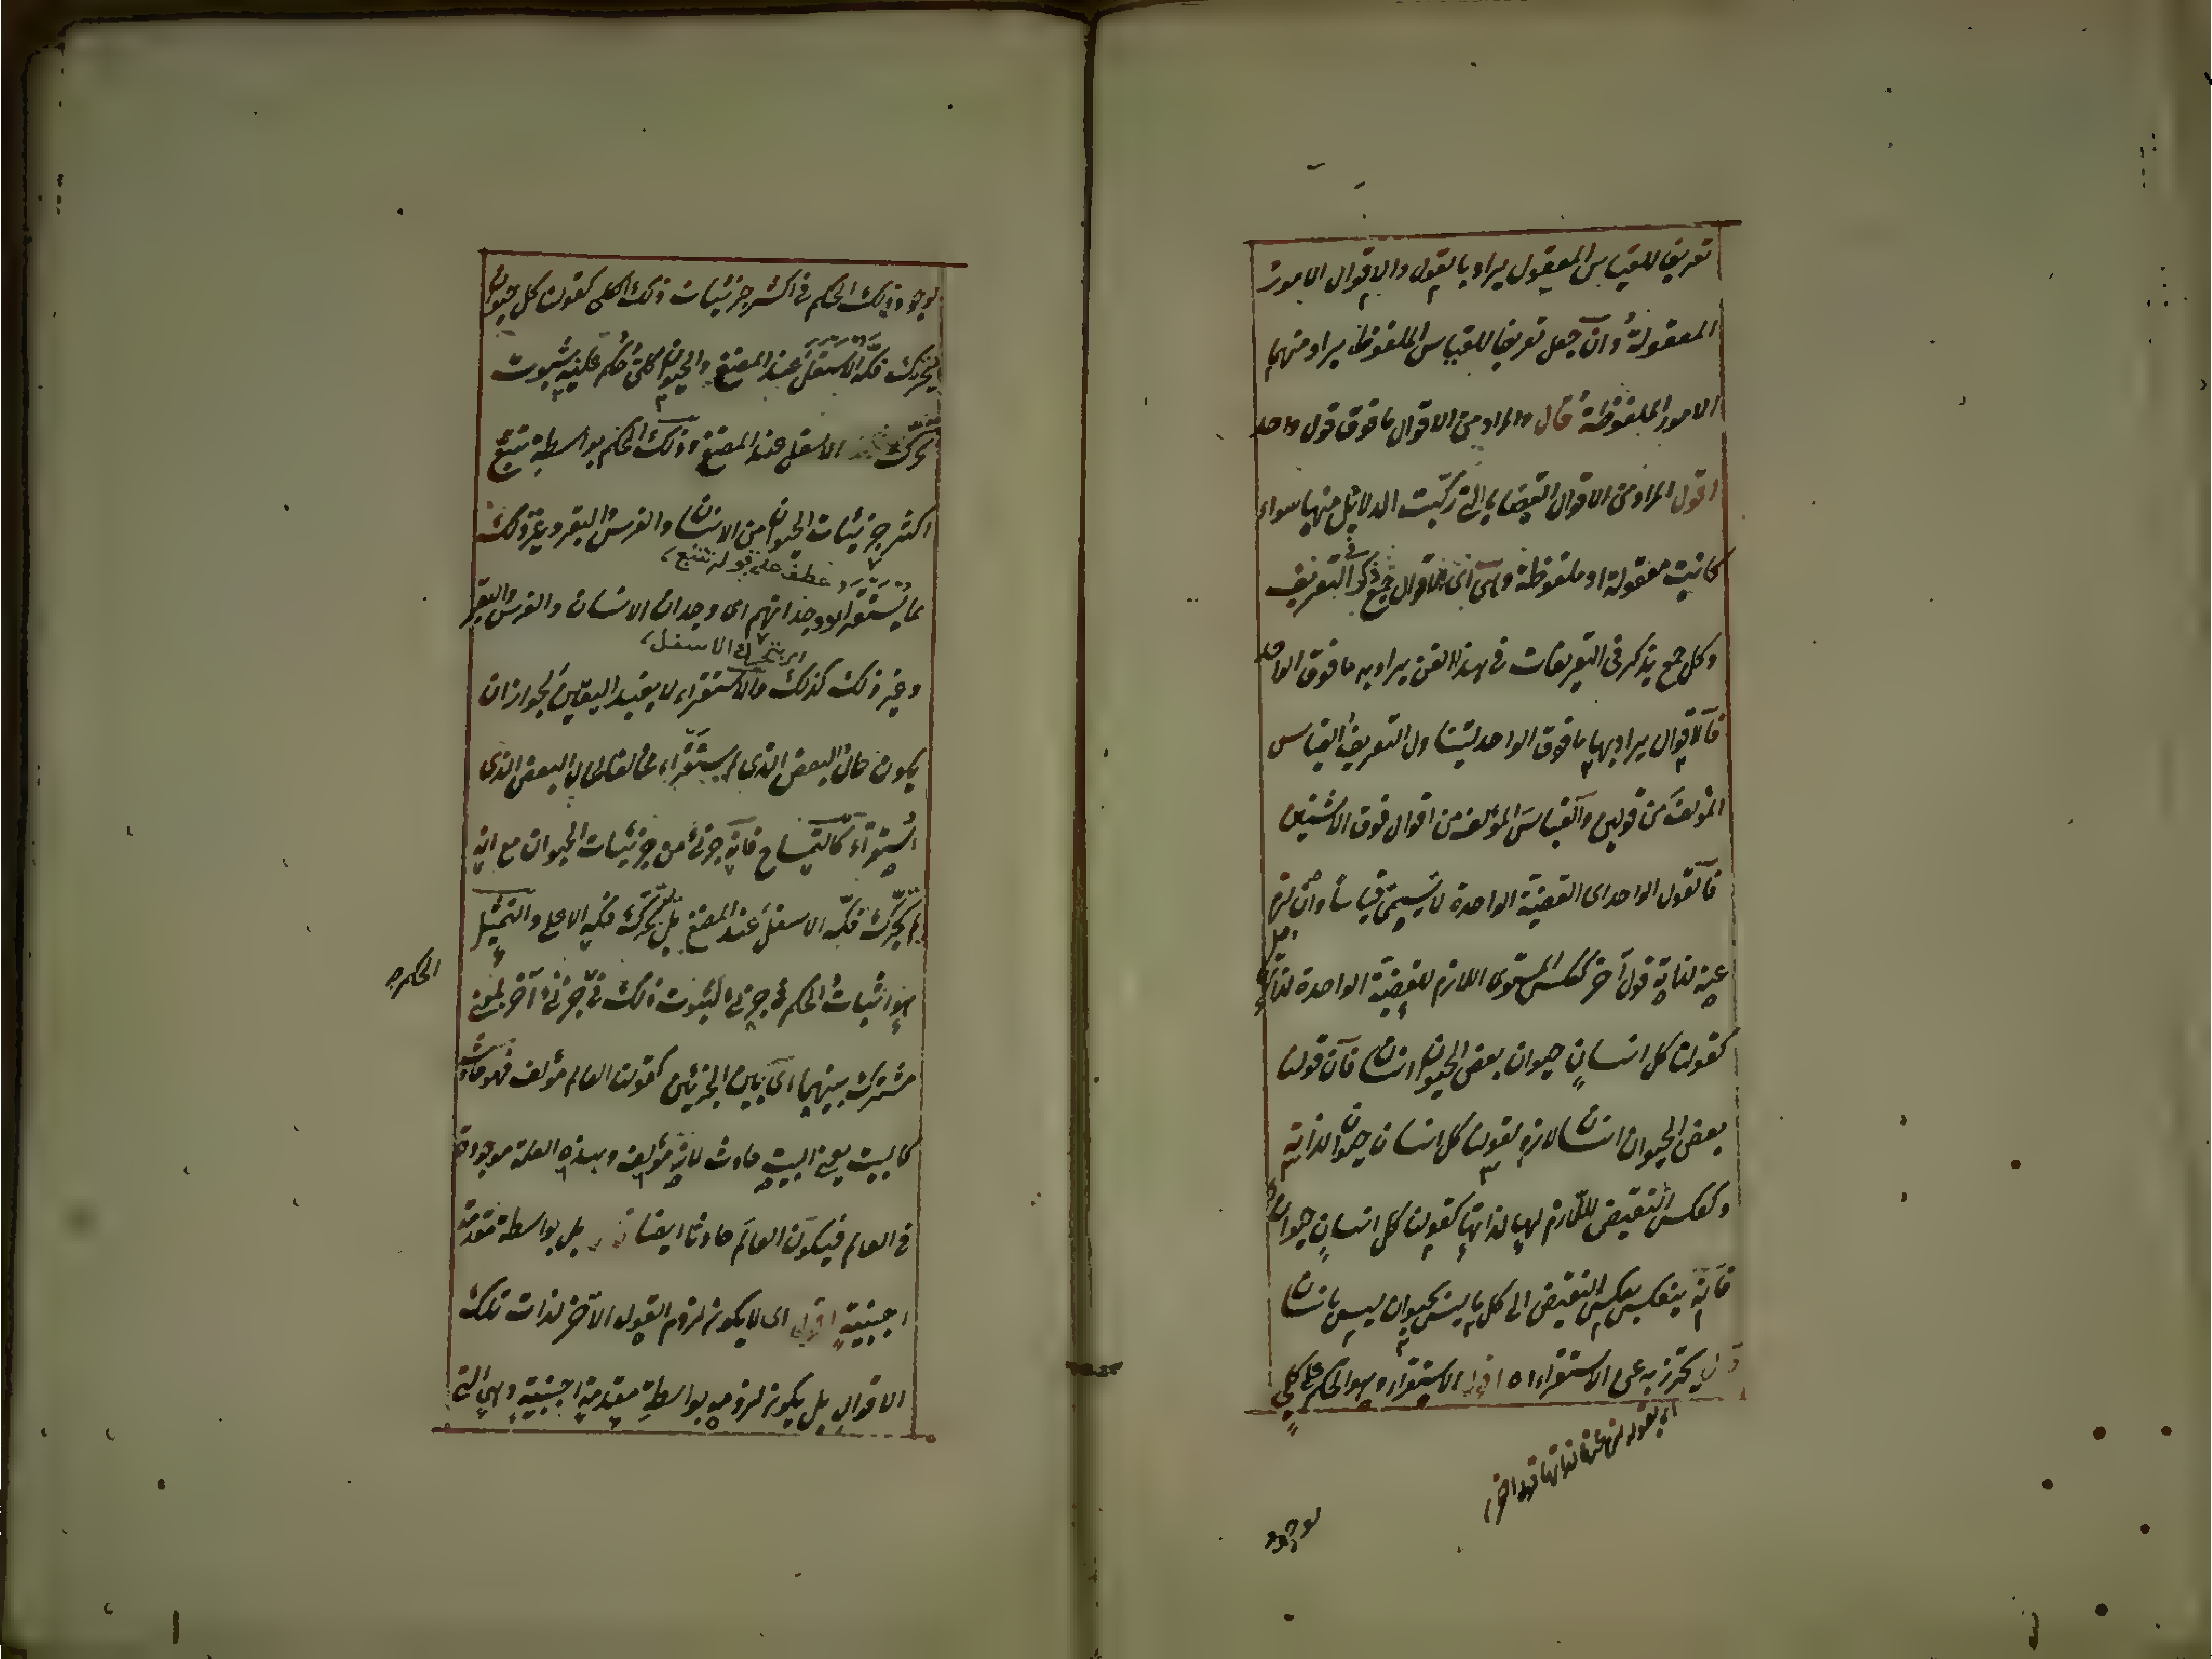 تعريفا للقياس المعقول يراد بالقول والاقوال الامور
المعقولة وان جعل تعريفا للقياس الملفوظ يراد منهما
الامور الملفوظة قال والمراد من الاقوال ما فوق قول واحد
اقول المراد من الاقوال القضايا التى تركبت الدلائل منها سواء
كانت معقولة او ملفوظة وهى اى الاقوال جمع ذكر فى التعريف
وكل جمع يذكر فى التعريفات فى هذا الفن يراد به ما فوق الواحد
فالاقوال يراد بها ما فوق الواحد ليتناول التعريف القياس
المؤلف من قولين والقياس المؤلف من اقوال فوق الاثنين
فالقول الواحد اى القضية الواحدة لا يسمى قياسا وان لزم
عنه لذاته قول آخر كعكس المستوى اللازم للقضية الواحدة لذاتها
كقولنا كل انسان حيوان بعض الحيوان انسان فان قولنا
بعض الحيوان انسان لازم لقولنا كل انسان حيوان لذاته
وكعكس النقيض اللازم لها لذاتها كقولنا كل انسان حيوان
فانه ينعكس بعكس النقيض الى كل ما ليس بحيوان ليس بانسان
قال يحترز به عن الاستقراء اه اقول الاستقراء وهو الحكم على كلى
اى بقوله لزم عنها لذاتها قول اخر
لوجود
لوجود ذلك الحكم فى اكثر جزئيات ذلك الكلى كقولنا كل حيوان
يتحرك فكه الاسفل عند المضغ والحيوان كلى حكم عليه بثبوت
تحرك الاسفل عند المضغ وذلك الحكم بواسطة تتبع
اكثر جزئيات الحيوان من الانسان والفرس والبقر وغير ذلك
عطف على قوله تتبع
مما يستقرأ ووجدانهم اى وجدان الانسان والفرس والبقر
اى يتحرك الاسفل
وغير ذلك كذلك والاستقراء لا يفيد اليقين لجواز ان
يكون حال البعض الذى لم يستقرأ مخالفا لحال البعض الذى
استقرأ كالتمساح فانه جزئى من جزئيات الحيوان مع انه
لم يحرك فكه الاسفل عند المضغ بل يحرك فكه الاعلى والتمثيل
هو اثبات الحكم فى جزئى لثبوت ذلك فى جزئى آخر لمعنى
الحكم
مشترك بينهما اى بين الجزئين كقولنا العالم مؤلف فهو حادث
كالبيت يعنى البيت حادث لانه مؤلف وهذه العلة موجودة
فى العالم فيكون العالم حادثا ايضا بل بواسطة مقدمة
اجنبية اقول اى لا يكون لزوم القول الآخر لذات تلك
الاقوال بل يكون لزومه بواسطة مقدمة اجنبية وهى التى